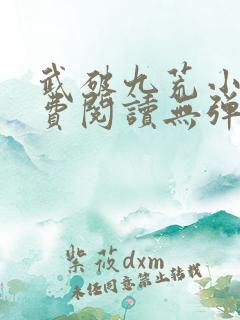 武破九荒小
費閱讀無彈
紫筱dxm
未经同意禁止转载